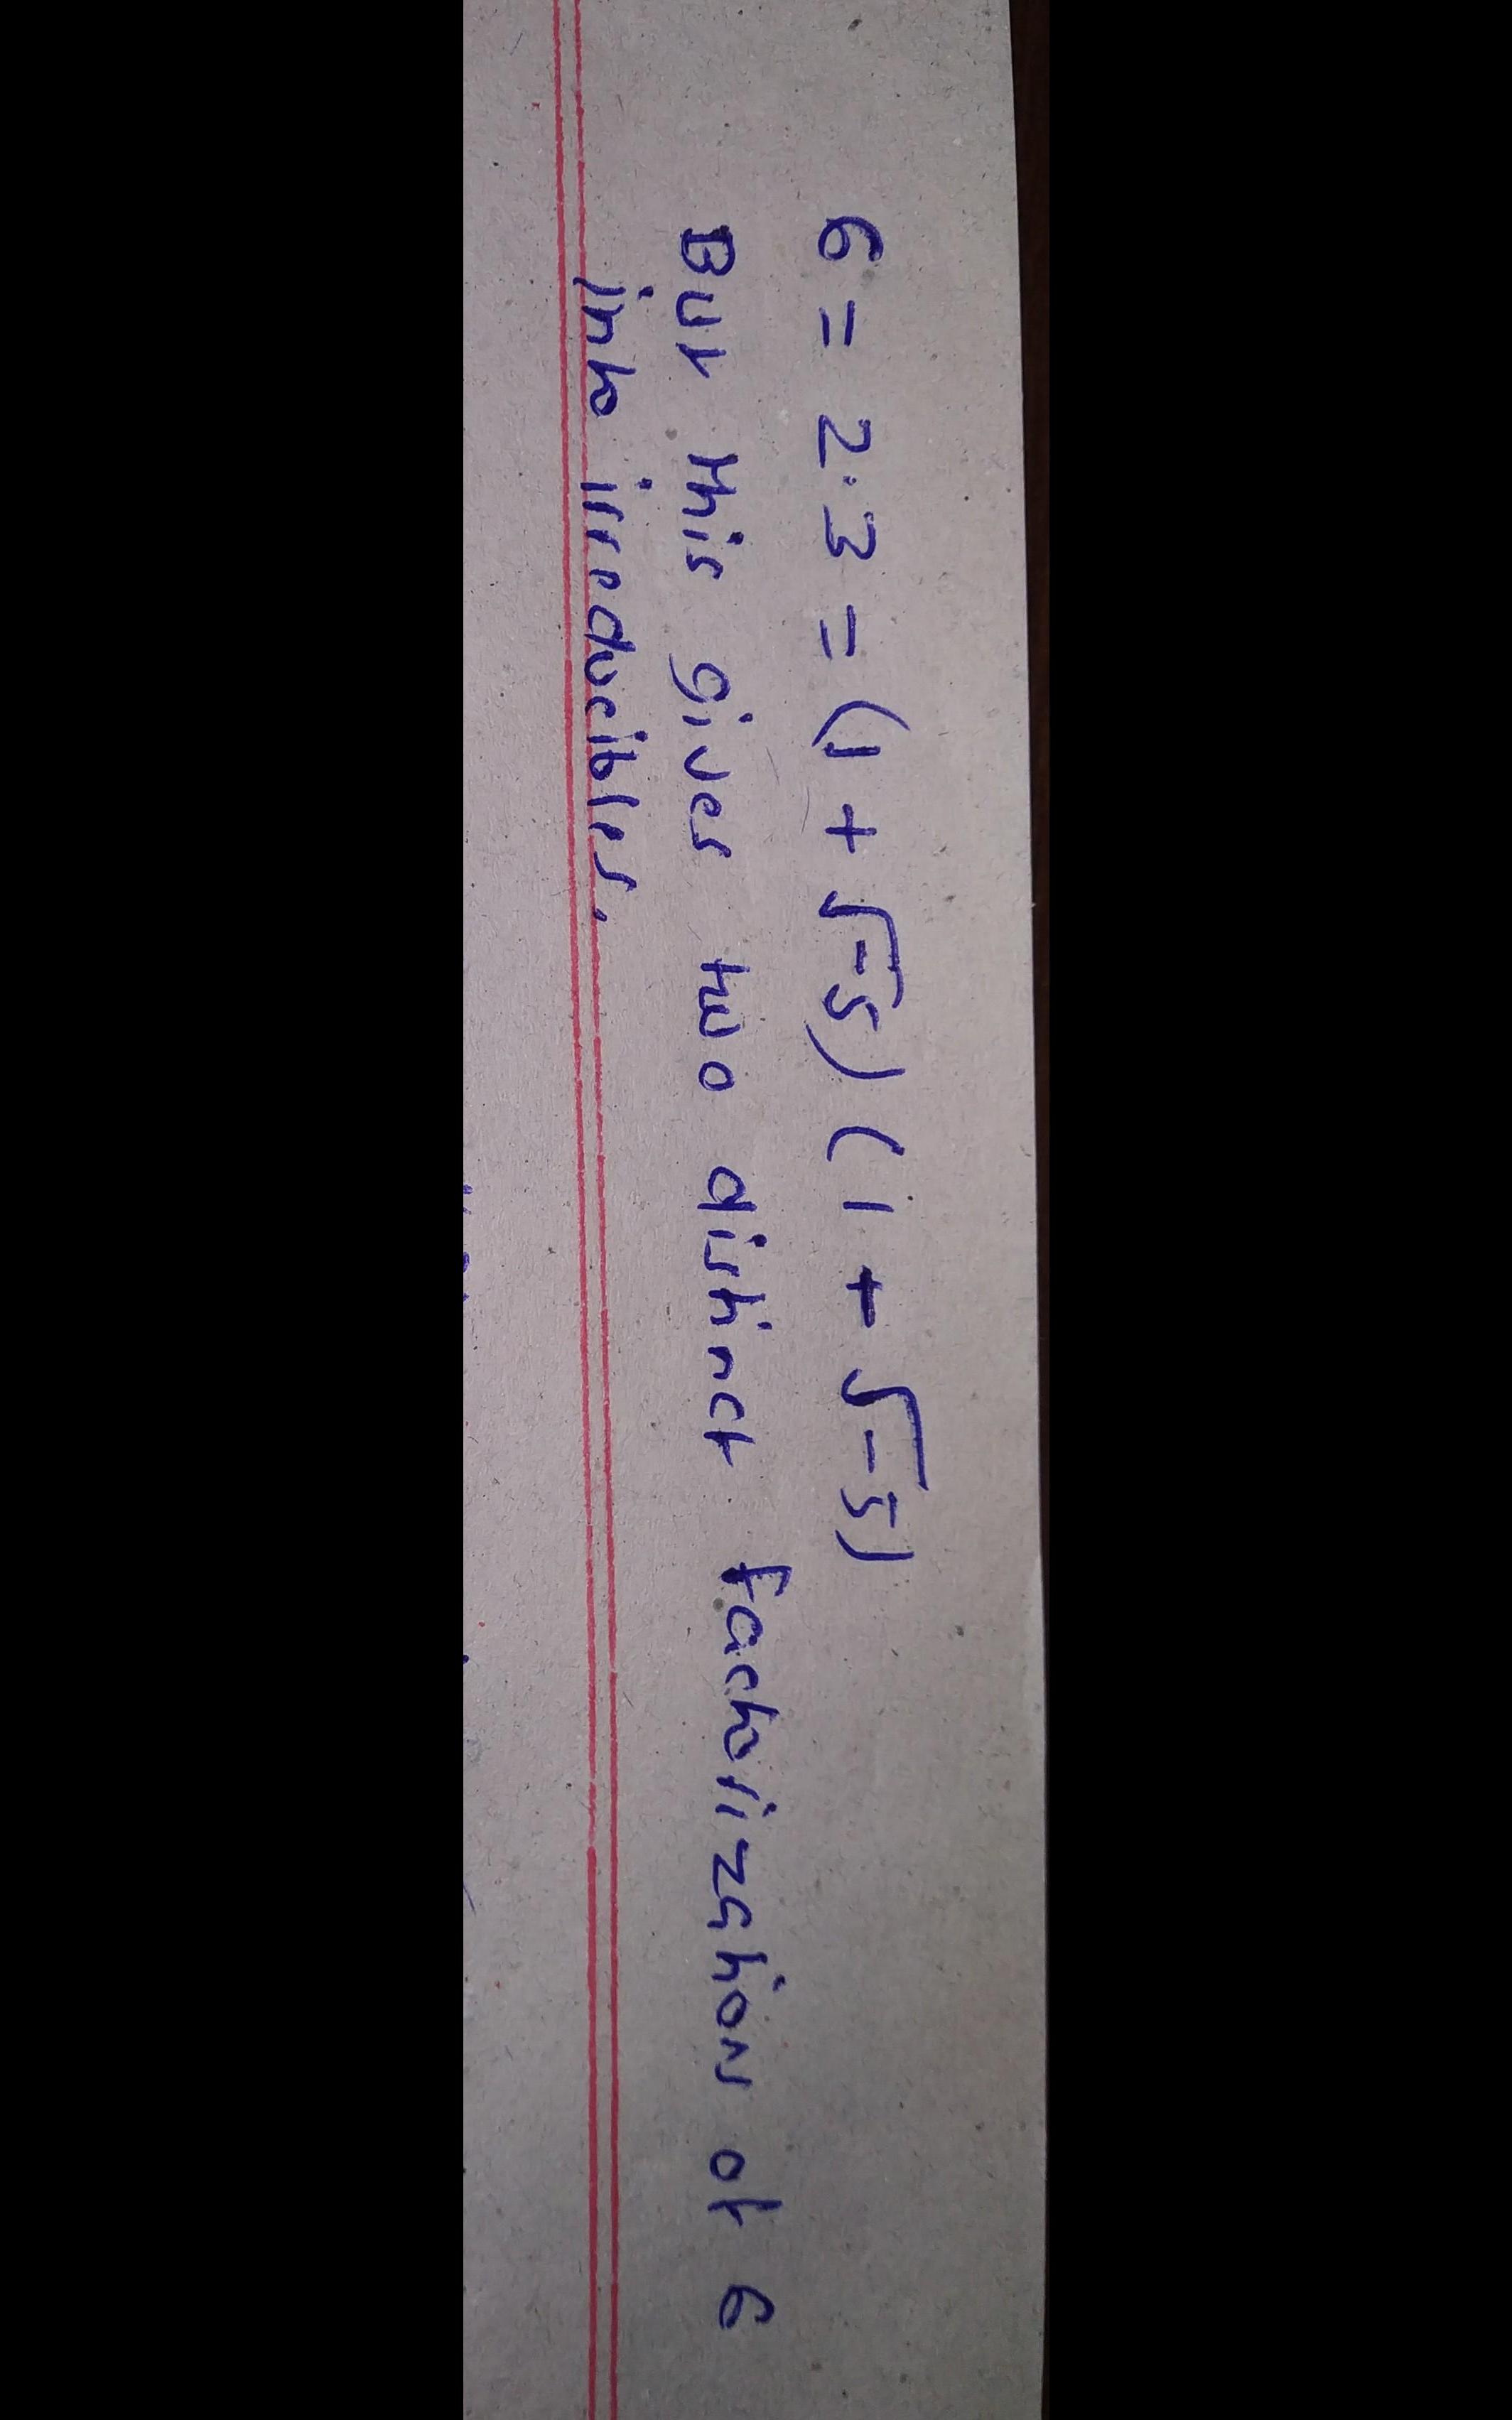 6 = 2·3 = (1 + √-5) (1 + √-5)
But this gives two distinct factorizations of 6
into irreducibles.